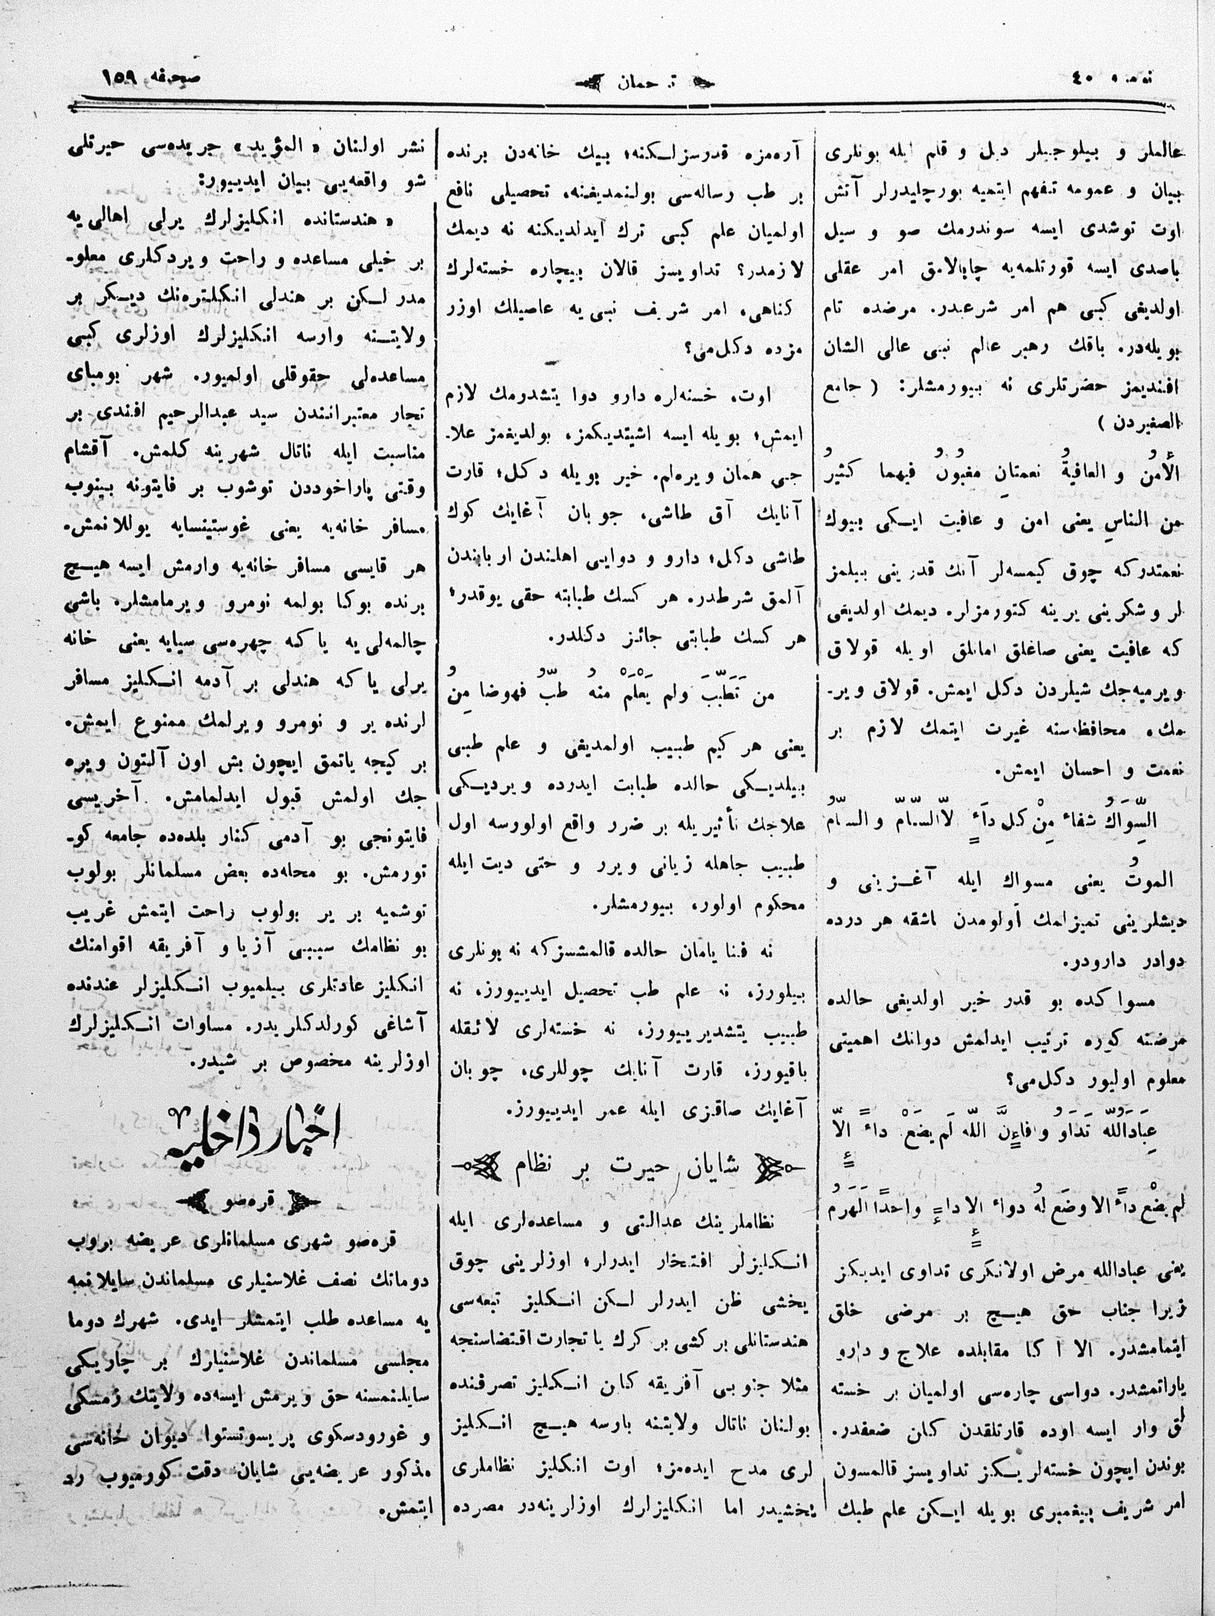 نومرو ٤٠
ترجمان
صحيفه ١٥٩
عالملر و بيلوجيلر ديل و قلم ايله بونلرى
بيان و عمومه تفهيم ايتميه بورچليدرلر آتش
اوت توشدى ايسه سوندرمك صو و سيل
باصدى ايسه قورتلمه‌يه چابالامق امر عقلى
اولديغى كبى هم امر شرعيدر. مرضده تام
بويله‌در. باقك رهبر عالم نبى عالى الشان
افنديمز حضرتلرى نه بيورمشلر: ( جامع
الصغيردن )
الأمنُ و العافيةُ نعمتانِ مغبُونُ فيهما كثيرُ
من الناسِ يعنى امن و عافيت ايكى بيوك
نعمتدركه چوق كيمسه‌لر آنك قدرينى بيلمز
لر و شكرينى يرينه كتورمزلر. ديمك اولديغى
كه عافيت يعنى صاغلق امانلق اويله قولاق
ويرميه‌جك شيلردن دكل ايمش. قولاق وير-
مك، محافظه‌سنه غيرت ايتمك لازم بر
نعمت و احسان ايمش.
السِّوَاكُ شفاءٌ مِنْ كل داَءٍ لاّالسّامّ والسّامُّ
الموتُ يعنى مسواك ايله آغزينى و
ديشلرينى تميزلمك أولومدن باشقه هر درده
دوادر دارودر.
مسواكده بو قدر خير اولديغى حالده
مرضنه كوره ترتيب ايدلمش دوانك اهميتى
معلوم اوليور دكل‌مى؟
عِبَادَاللّه تَدَاوُ وافاءِنَّ اللّه لَم يضَعْ داءً الاّ
لم يضْع داءً الا وضَع لهُ دواءً الا داءٍ واحدًا اَلهَرَمُ
يعنى عبادالله مرض اولانكزى تداوى ايديكز
زيرا جناب حق هيچ بر مرضى خلق
ايتمامشدر. الا اكا مقابلده علاج و دارو
ياراتمشدر. دواسى چاره‌سى اولميان بر خسته
لق وار ايسه اوده قارتلقدن كلن ضعفدر.
بوندن ايچون خسته‌لريكز تداويسز قالمسون
امر شريف پيغمبرى بويله ايكن علم طبك
آره‌مزه قدرسزلكنه؛ بيك خانه‌دن برنده
بر طب رساله‌سى بولنمديغنه، تحصيلى نافع
اولميان علم كبى ترك ايدلديكنه نه ديمك
لازمدر؟ تداويسز قالان بيچاره خسته‌لرك
كناهى، امر شريف نبى‌يه عاصيلك اوزر
مزده دكل‌مى؟
اوت، خسته‌لره دارو دوا يتشدورمك لازم
ايمش؛ بويله ايسه اشيتديكمز، بولديغمز علا-
جى همان ويره‌لم. خير بويله دكل؛ قارت
آنايك آق طاشى، جوبان آغايك كوك
طاشى دكل؛ دارو و دوايى اهلندن اربابندن
آلمق شرطدر. هر كسك طبابته حقى يوقدر؛
هر كسك طبابتى جائز دكلدر.
من تَطَبّبَ ولم يَعْلَمْ منهُ طبّ فهوضا مِنُ
يعنى هر كيم طبيب اولمديغى و علم طبى
بيلديكى حالده طبابت ايدرده ويرديكى
علاجك تأثيريله بر ضرر واقع اولورسه اول
طبيب جاهله زيانى ويرر و حتى ديت ايله
محكوم اولور، بيورمشلر.
نه فنا يامان حالده قالمشسزكه نه بونلرى
بيلورز، نه علم طب تحصيل ايدييورز، نه
طبيب يتشديرييورز، نه خسته‌لرى لائقله
باقيورز، قارت آنايك چوللرى، چوبان
آغايك صاقزى ايله عمر ايدييورز.
شايان حيرت بر نظام
نظاملرينك عدالتى و مساعده‌لرى ايله
انكليزلر افتخار ايدرلر؛ اوزلرينى چوق
يخشى ظن ايدرلر لكن انكليز تبعه‌سى
هندستانلى بر كشى بر كرك يا تجارت اقتضاسنجه
مثلا جنوبى آفريقه كه‌ن انكليز تصرفنده
بولنان ناتال ولايتنه بارسه هيچ انكليز
لرى مدح ايده‌مز؛ اوت انكليز نظاملرى
يخشيدر اما انكليزلرك اوزلرينه‌در مصرده
نشر اولنان « المؤيد» جريده‌سى حيرتلى
شو واقعه‌يى بيان ايدييور:
« هندستانده انكليزلرك يرلى اهالى‌يه
بر خيلى مساعده و راحت ويردكلرى معلو-
مدر لكن بر هندلى انكلتره‌نك ديكر بر
ولايتنه وارسه انكليزلرك اوزلرى كبى
مساعده‌لى حقوقلى اولميور. شهر بومباى
تجار معتبراننـدن سيد عبدالرحيم افندى بر
مناسبت ايله ناتال شهرينه كلمش. آقشام
وقتى پاراخوددن توشوب بر فايتونه بينوب
مسافر خانه‌يه يعنى غوستينسايه يوللانمش.
هر قايسى مسافر خانه‌يه وارمش ايسه هيچ
برنده بوكا بولمه نومرو ويرمامشلر. باشى
چالمه‌لى‌يه ياكه چهره‌سى سيايه يعنى خانه
يرلى ياكه هندلى بر آدمه انكليز مسافر
لرنده ير و نومرو ويرلمك ممنوع ايمش.
بر كيجه ياتمق ايچون بش اون آلتون ويره
جك اولمش قبول ايدلمامش. آخريسى
فايتونجى بو آدمى كنار بلده‌ده جامعه كو-
تورمش. بو محله‌ده بعض مسلمانلر بولوب
توشميه بر ير بولوب راحت ايتمش غريب
بو نظامك سببى آزيا و آفريقه اقوامنك
انكليز عادتلرى بيلميوب انكليزلر عندنده
آشاغى كورلدكلريدر. مساوات انكليزلرك
اوزلرينه مخصوص بر شيدر.
اخبار داخليه
قره‌صو
قره‌صو شهرى مسلمانلرى عريضه بروب
دومانك نصف غلاسنيلرى مسلماندن سايلانمه
يه مساعده طلب ايتمشلر ايدى. شهرك دوما
مجلسى مسلماندن غلاسنيلرك بر چاريكى
سايلنمسنه حق ويرمش ايسه‌ده ولايتك زمسكى
و غورودسكوى پريسوتستوا ديوان خانه‌سى
مذكور عريضه‌يى شايان دقت كورميوب رد
ايتمش.